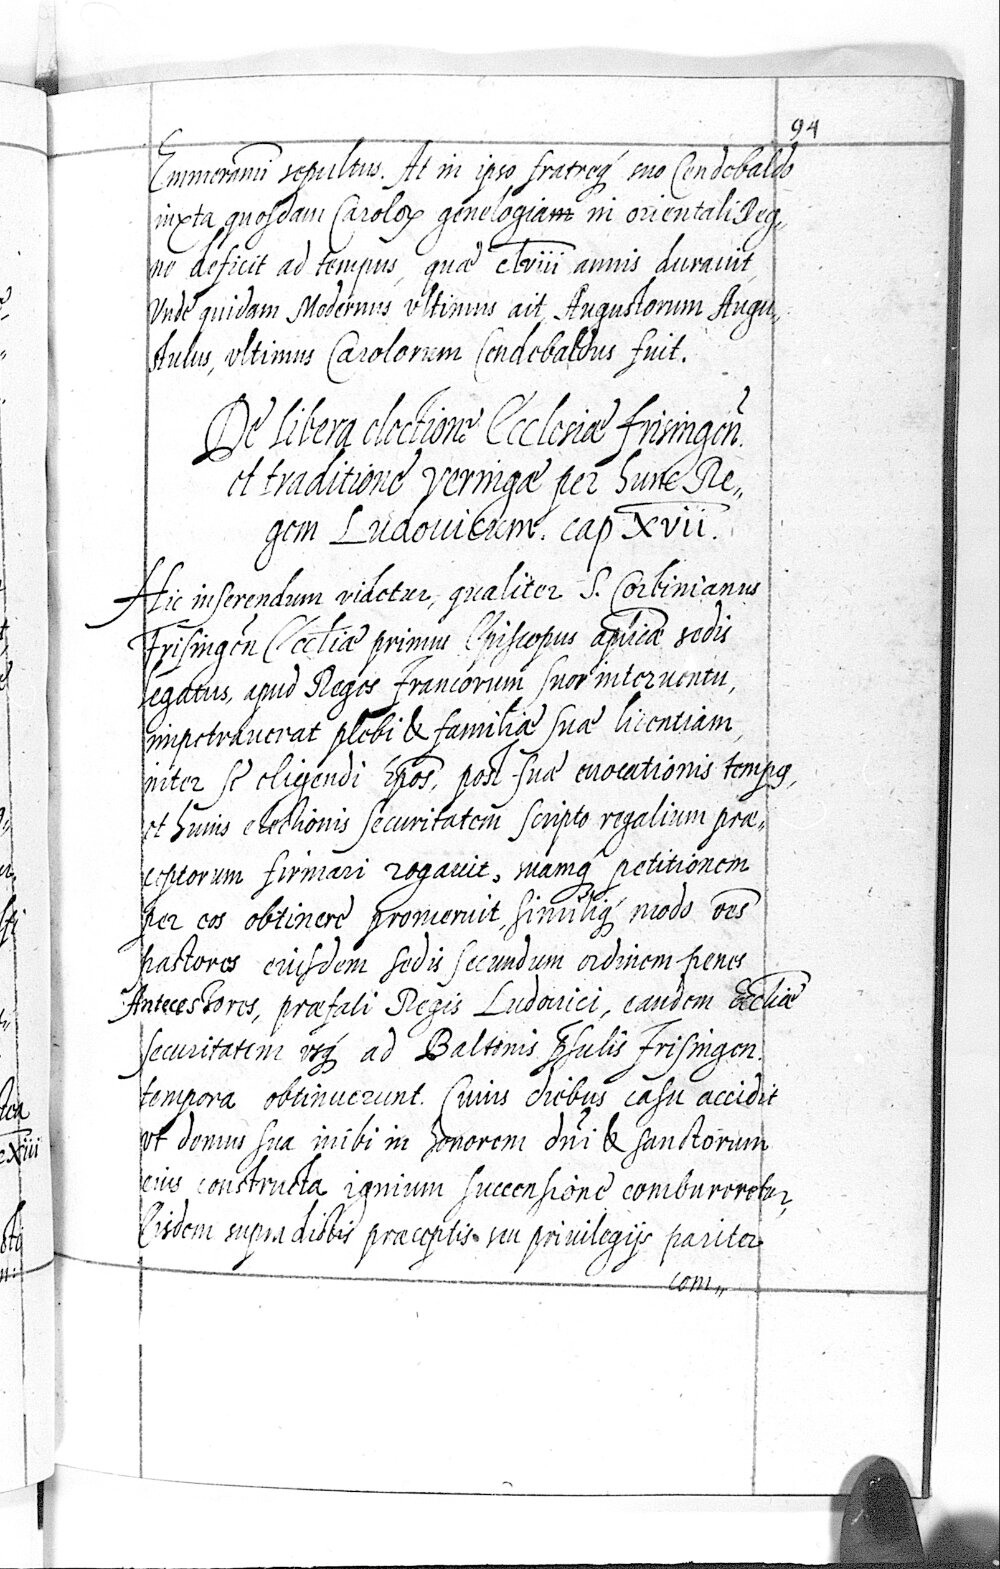 94
Emmerami sepultus. At in ipso fratreq́ suo Cendebaldo
iuxta quosdam Carolor genelogiam in orientali Reg„
ne deficit ad tempus, quæ clviii annis durauit,
Vnde quidam Modernus vltimus ait, Augustorum Augu„
stulus, vltimus Carolorum Cendebaldus fuit.
De libera electione Ecclesiæ frisingeñ.
et traditione veringæ per hunc Re„
gem Ludouicum. cap XVII.
Hic inserendum videtur, qualiter S. Corbinianus
Frisingeñ Eccliæ primus Episcopus aplicæ sedis
legatus, apud Reges Francorum suor interuentu,
impetrauerat plebi & familiæ suæ licentiam,
inter se eligendi ep̄os, post suæ euocationis tempq,
et huius electionis securitatem scripto regalium præ„
ceptorum firmari rogauit, suamq́ petitionem
per eos obtinere promeruit, similiq́ modo oēs
pastores eiusdem sedis secundum ordinem penes
Antecessores, præfati Regis Ludouici, eandem Eccliæ
securitatem vsq́ ad Baltonis p̄sulis Frisingen.
tempora obtinuerunt. Cuius diebus casu accidit
vt domus sua inibi in honorem dñi & sanctorum
eius constructa ignium succensione combureretur,
Eisdem supra dictis præceptis seu priuilegijs pariter
com„